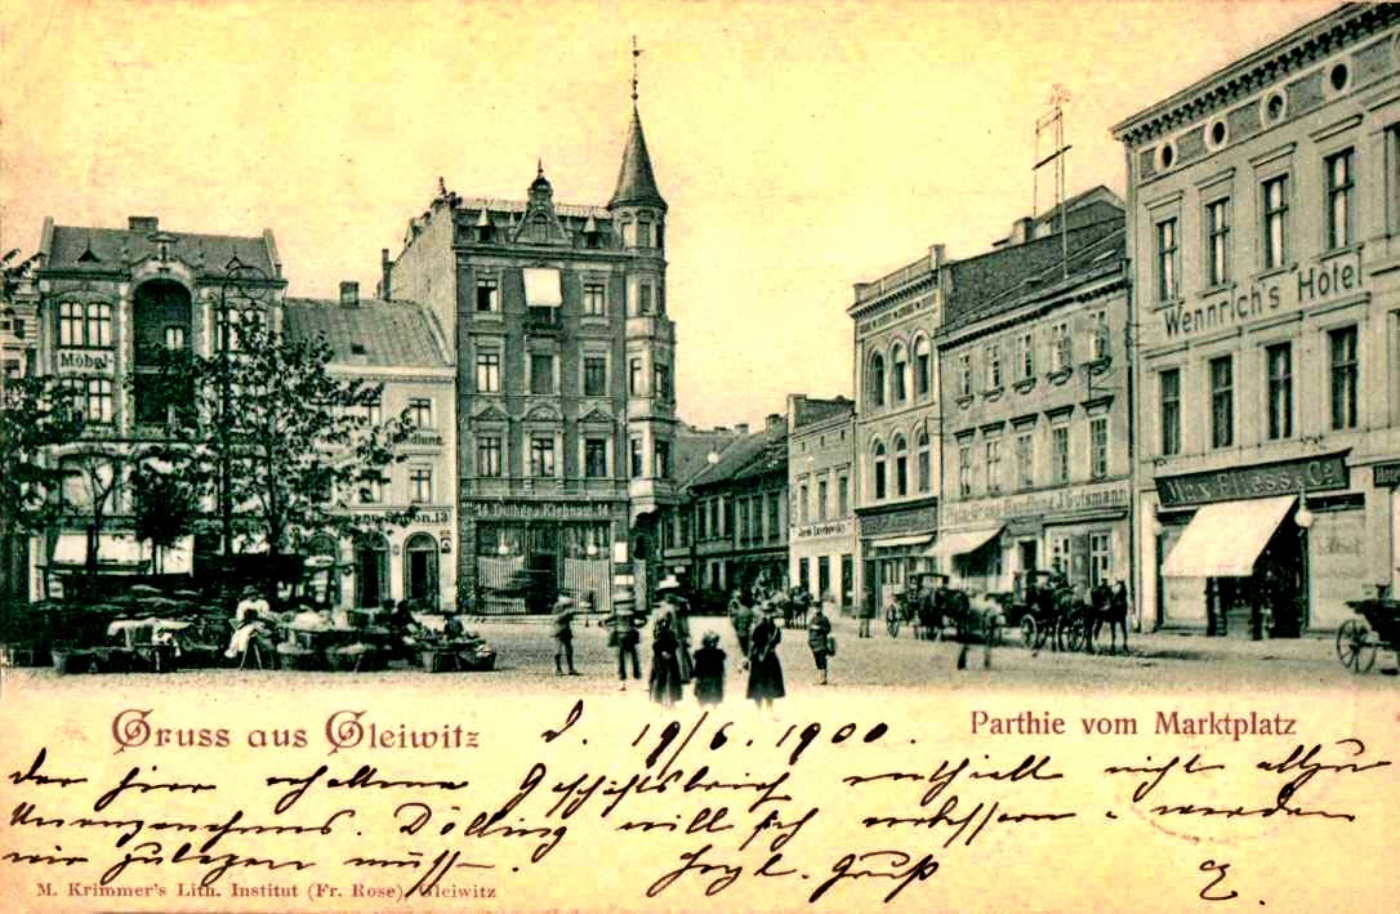 Möbel-
Handlung.
14 14
13
Wennrich's Hotel
Max Fliess & Co
Gross-Handlung J. Gutsmann
Gruss aus Gleiwitz
d. 19/6. 1900.
Parthie vom Marktplatz
der hier erhaltene Geschäftsbrief enthielt nicht allzu
Unangenehmes. Dölling will sich verbessern
wir zulegen müssen. Hrzl. Gruß
M. Krimmer's Lith. Institut (Fr. Rose), Gleiwitz